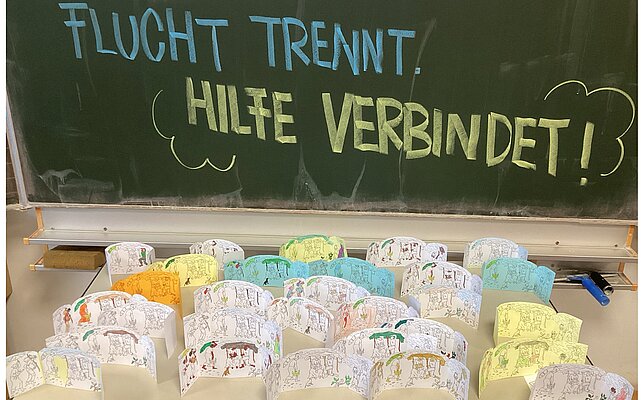 FLUCHT TRENNT.
HILFE VERBINDET!